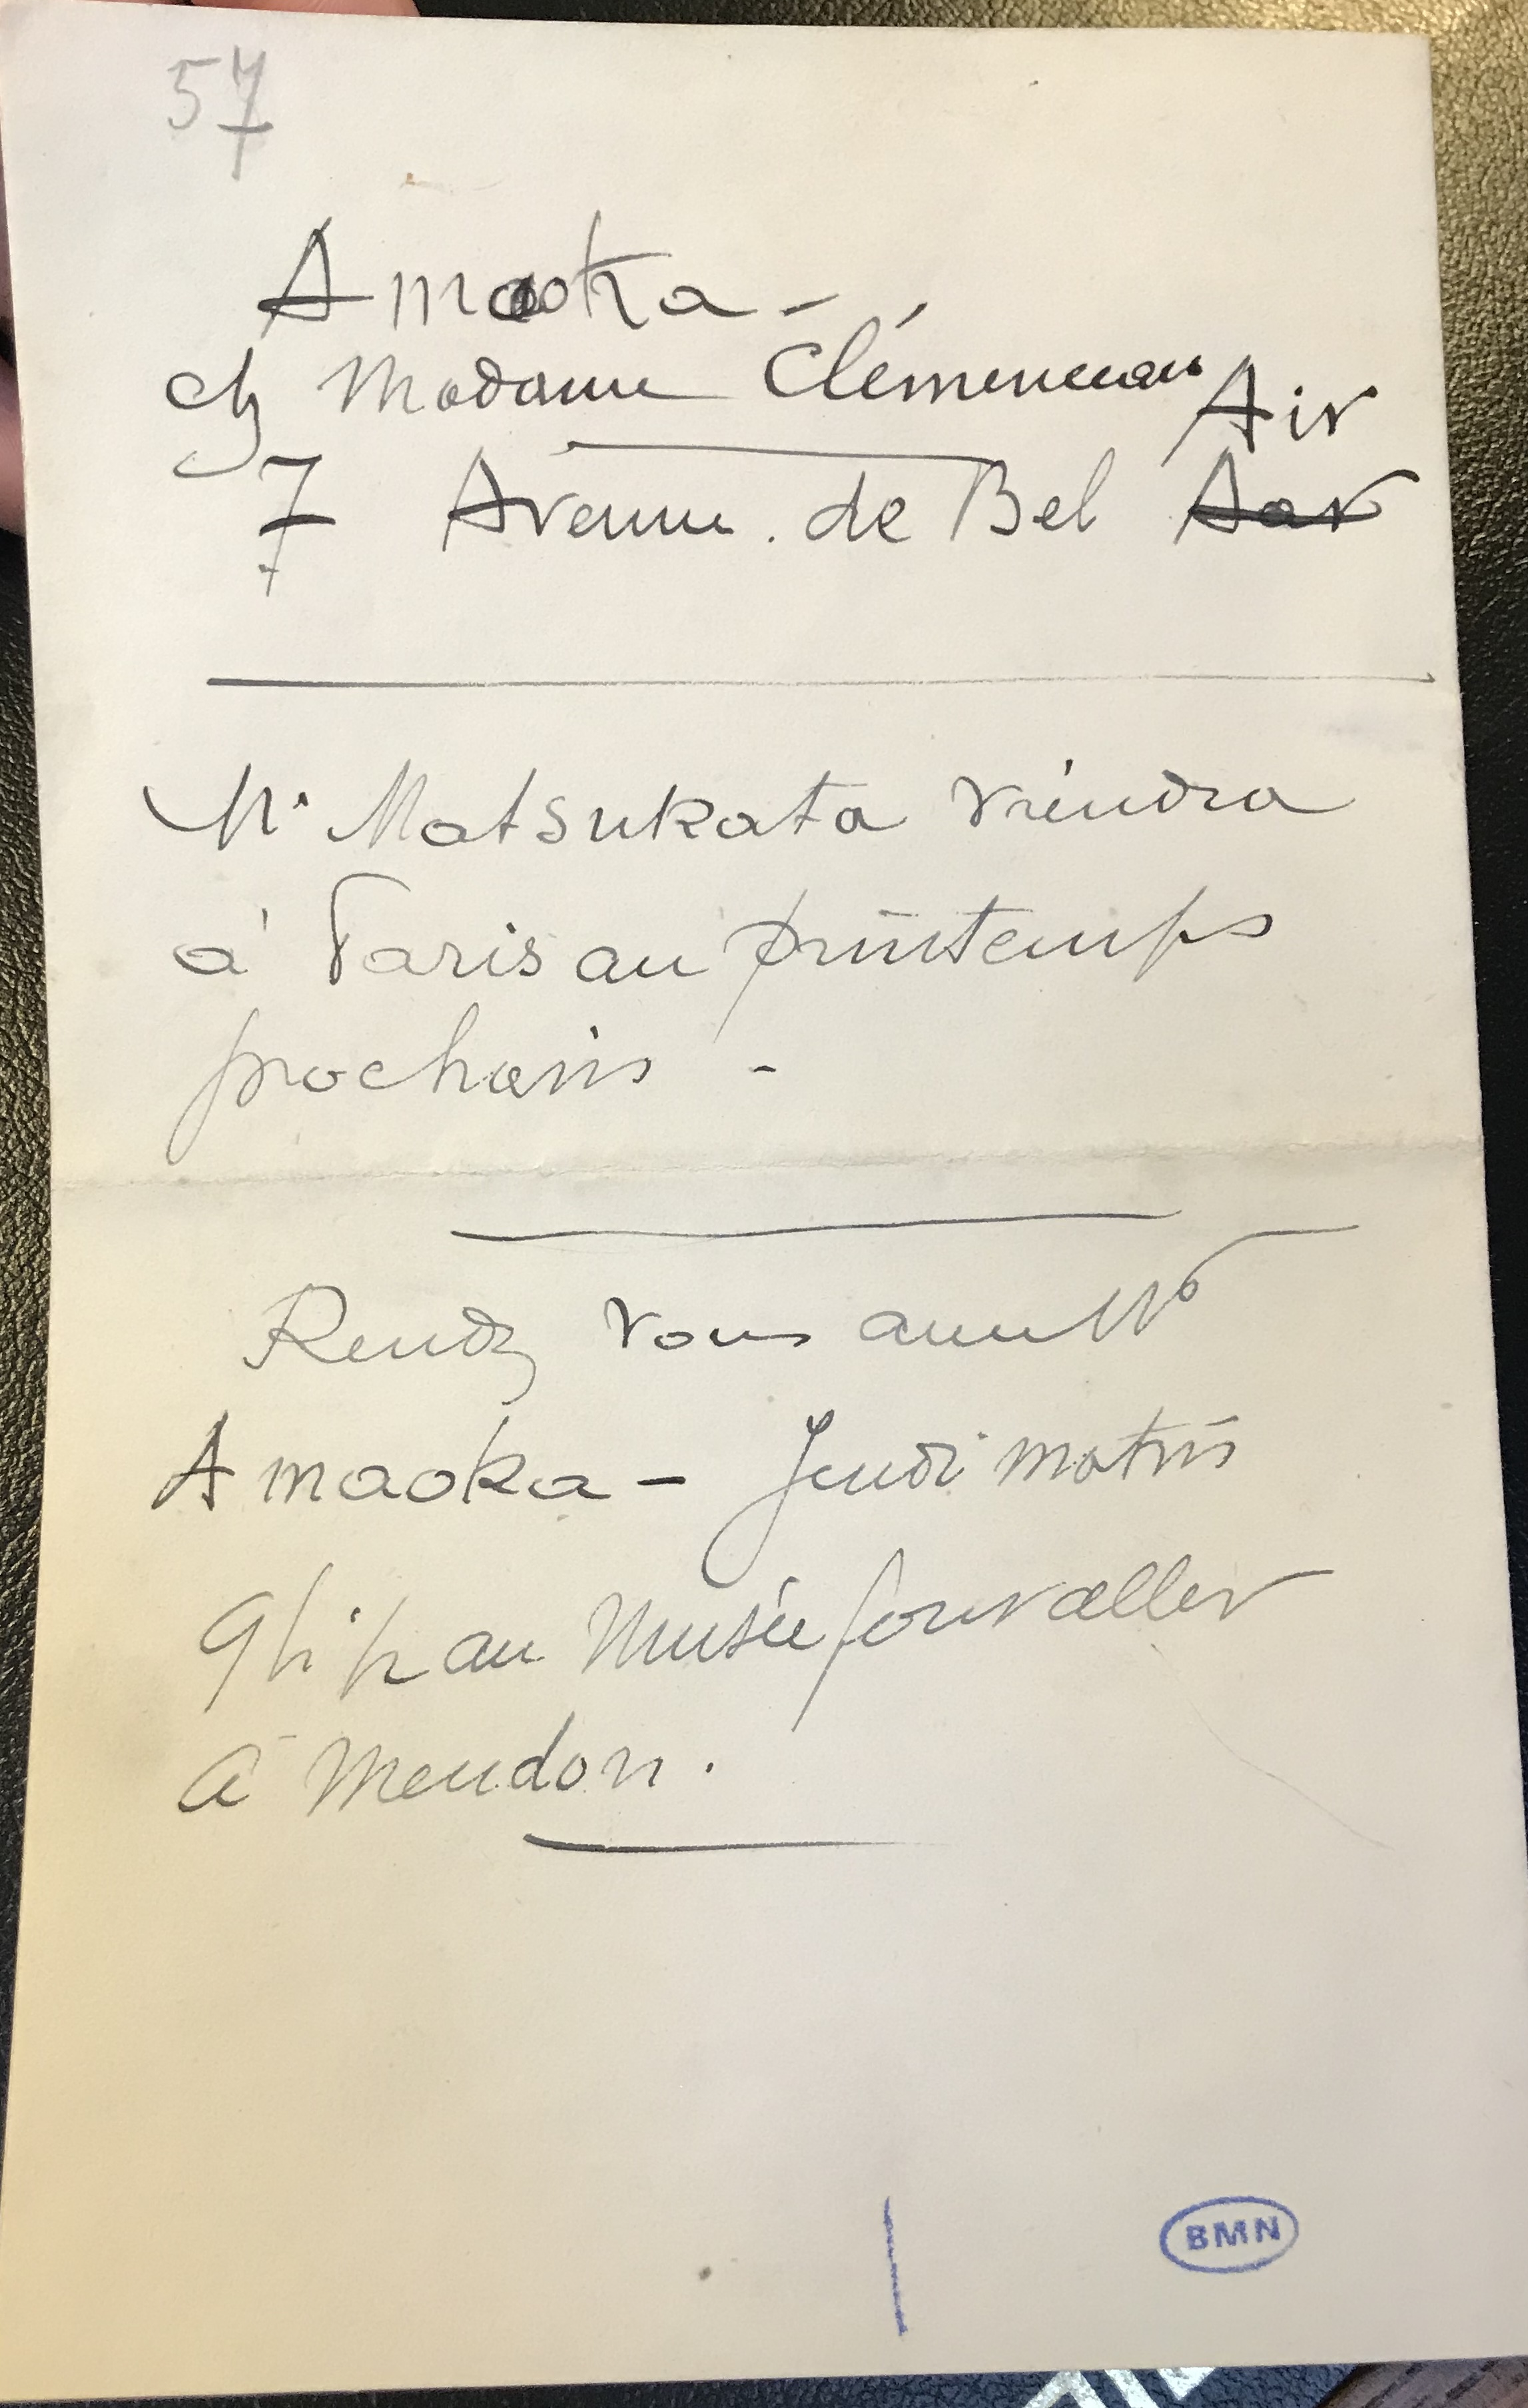 57
Amaoka -
chz Madame Clémenceau Air
7 Avenue. de Bel Aar
Mr Matsukata viendra
à Paris au printemps
prochain -
Rendz vous avec Mr
Amaoka - Jeudi matin
9h 1/2 au Musée pour aller
à Meudon.
BMN